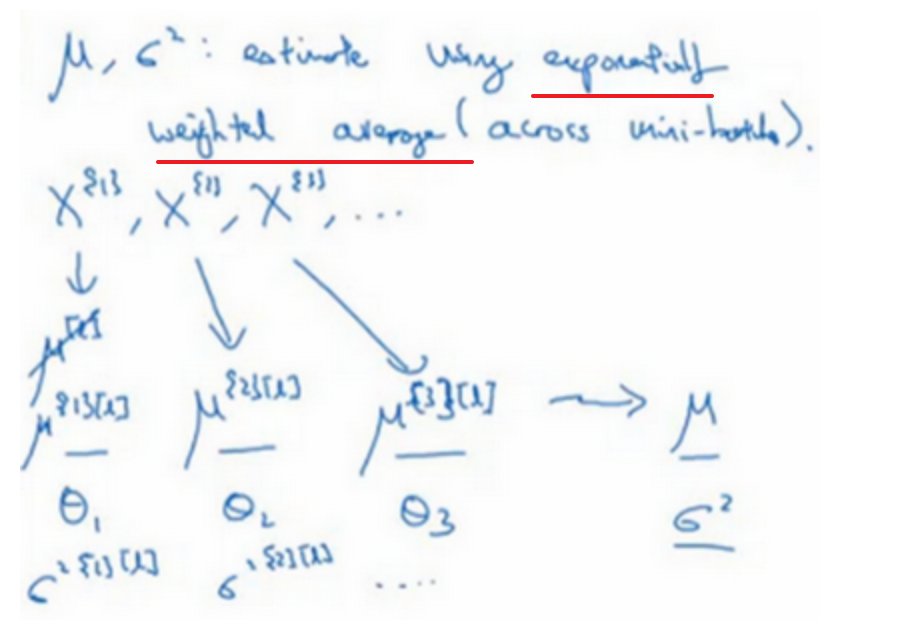 μ, σ² : estimate using exponentially
weighted average (across mini-batches).
X^{1}, X^{2}, X^{3}, ....
μ^[l]
μ^{1}[l] μ^{2}[l] μ^{3}[l] → μ
θ₁ θ₂ θ₃ σ²
σ²^{1}[l] σ²^{2}[l] ....